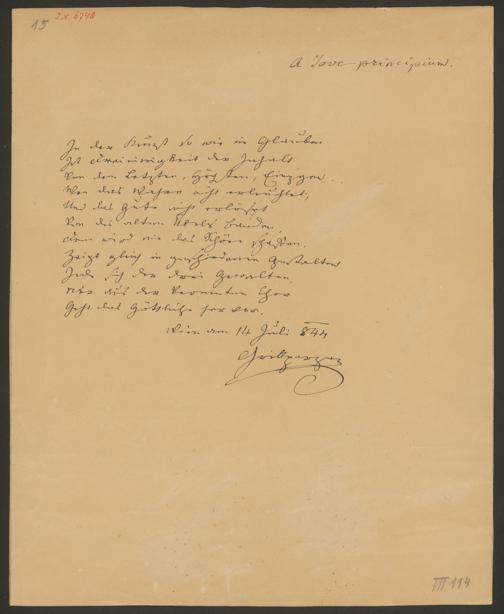 15
2x 6740
A Jove principium.
In der Kunst so wie im Glauben
Ist Dreieinigkeit der Inhalt
Von dem Letzten, Höchsten, Einzgen
Wen das Wahre nicht erleuchtet,
Und das Gute nicht erlöset
Von des alten Übels Banden,
Dem wird nie das Schöne
Zeigt gleich in geschiednen Gestalten
Jede sich der drei Gewalten,
Nur aus der Vereinten Chor
Geht das Göttliche hervor.
Wien am 14 Juli 844
Grillparzer
III 114